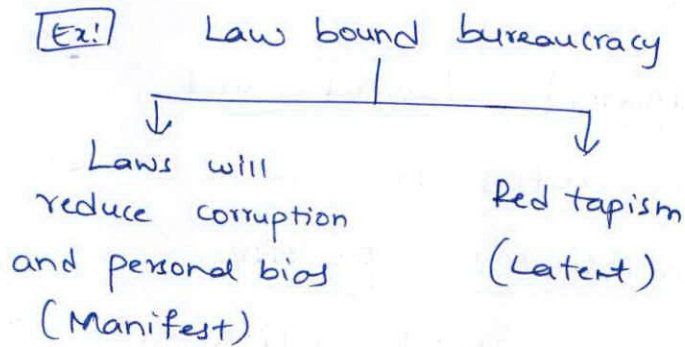 Ex! Law bound bureaucracy
Laws will
reduce corruption
and personal bias
(Manifest)
Red tapism
(Latent)